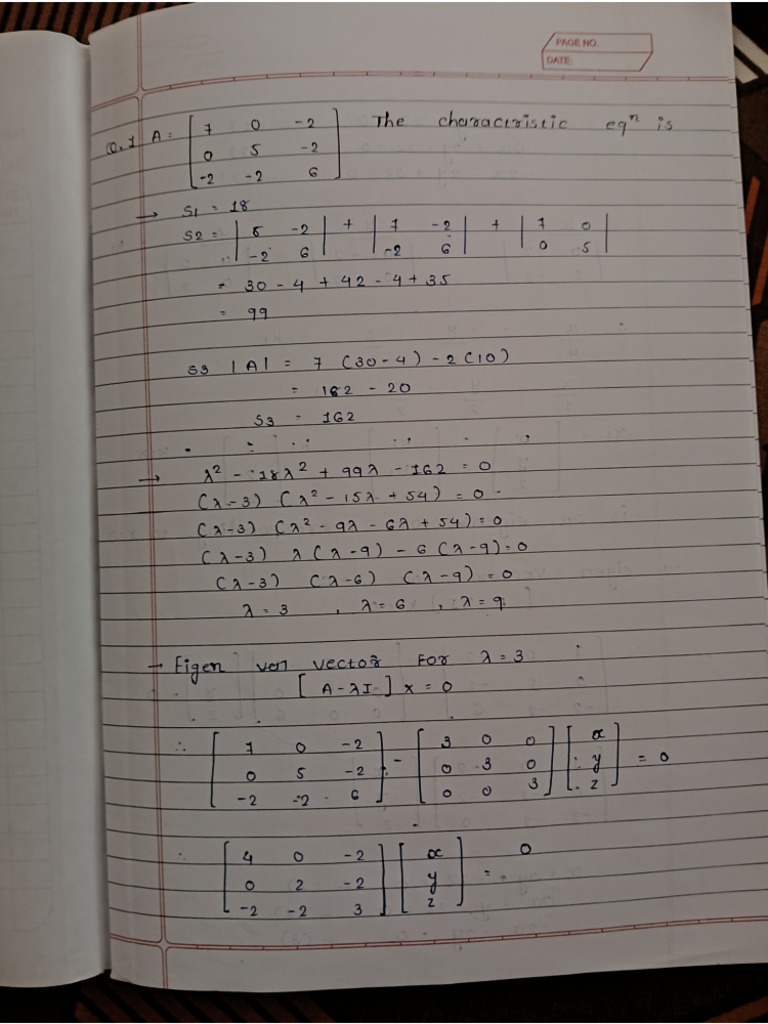 PAGE NO.
DATE:
Q.1 A = [ 7 0 -2 The charactristic eqⁿ is
0 5 -2
-2 -2 6 ]
→ S1 = 18
S2 = | 5 -2 | + | 7 -2 | + | 7 0 |
| -2 6 | | -2 6 | | 0 5 |
= 30 - 4 + 42 - 4 + 35
= 99
S3 |A| = 7 (30 - 4) - 2 (10)
= 182 - 20
S3 = 162
→ λ² - 18λ² + 99λ - 162 = 0
(λ-3) (λ² - 15λ + 54) = 0
(λ-3) (λ² - 9λ - 6λ + 54) = 0
(λ-3) λ (λ-9) - 6 (λ-9) = 0
(λ-3) (λ-6) (λ-9) = 0
λ = 3 , λ = 6 , λ = 9
→ Eigen vector For λ = 3
[ A - λI ] x = 0
∴ [ 7 0 -2 ] - [ 3 0 0 ] [ x ]
[ 0 5 -2 ] [ 0 3 0 ] [ y ] = 0
[ -2 -2 6 ] [ 0 0 3 ] [ z ]
∴ [ 4 0 -2 ] [ x ] 0
[ 0 2 -2 ] [ y ] =
[ -2 -2 3 ] [ z ]